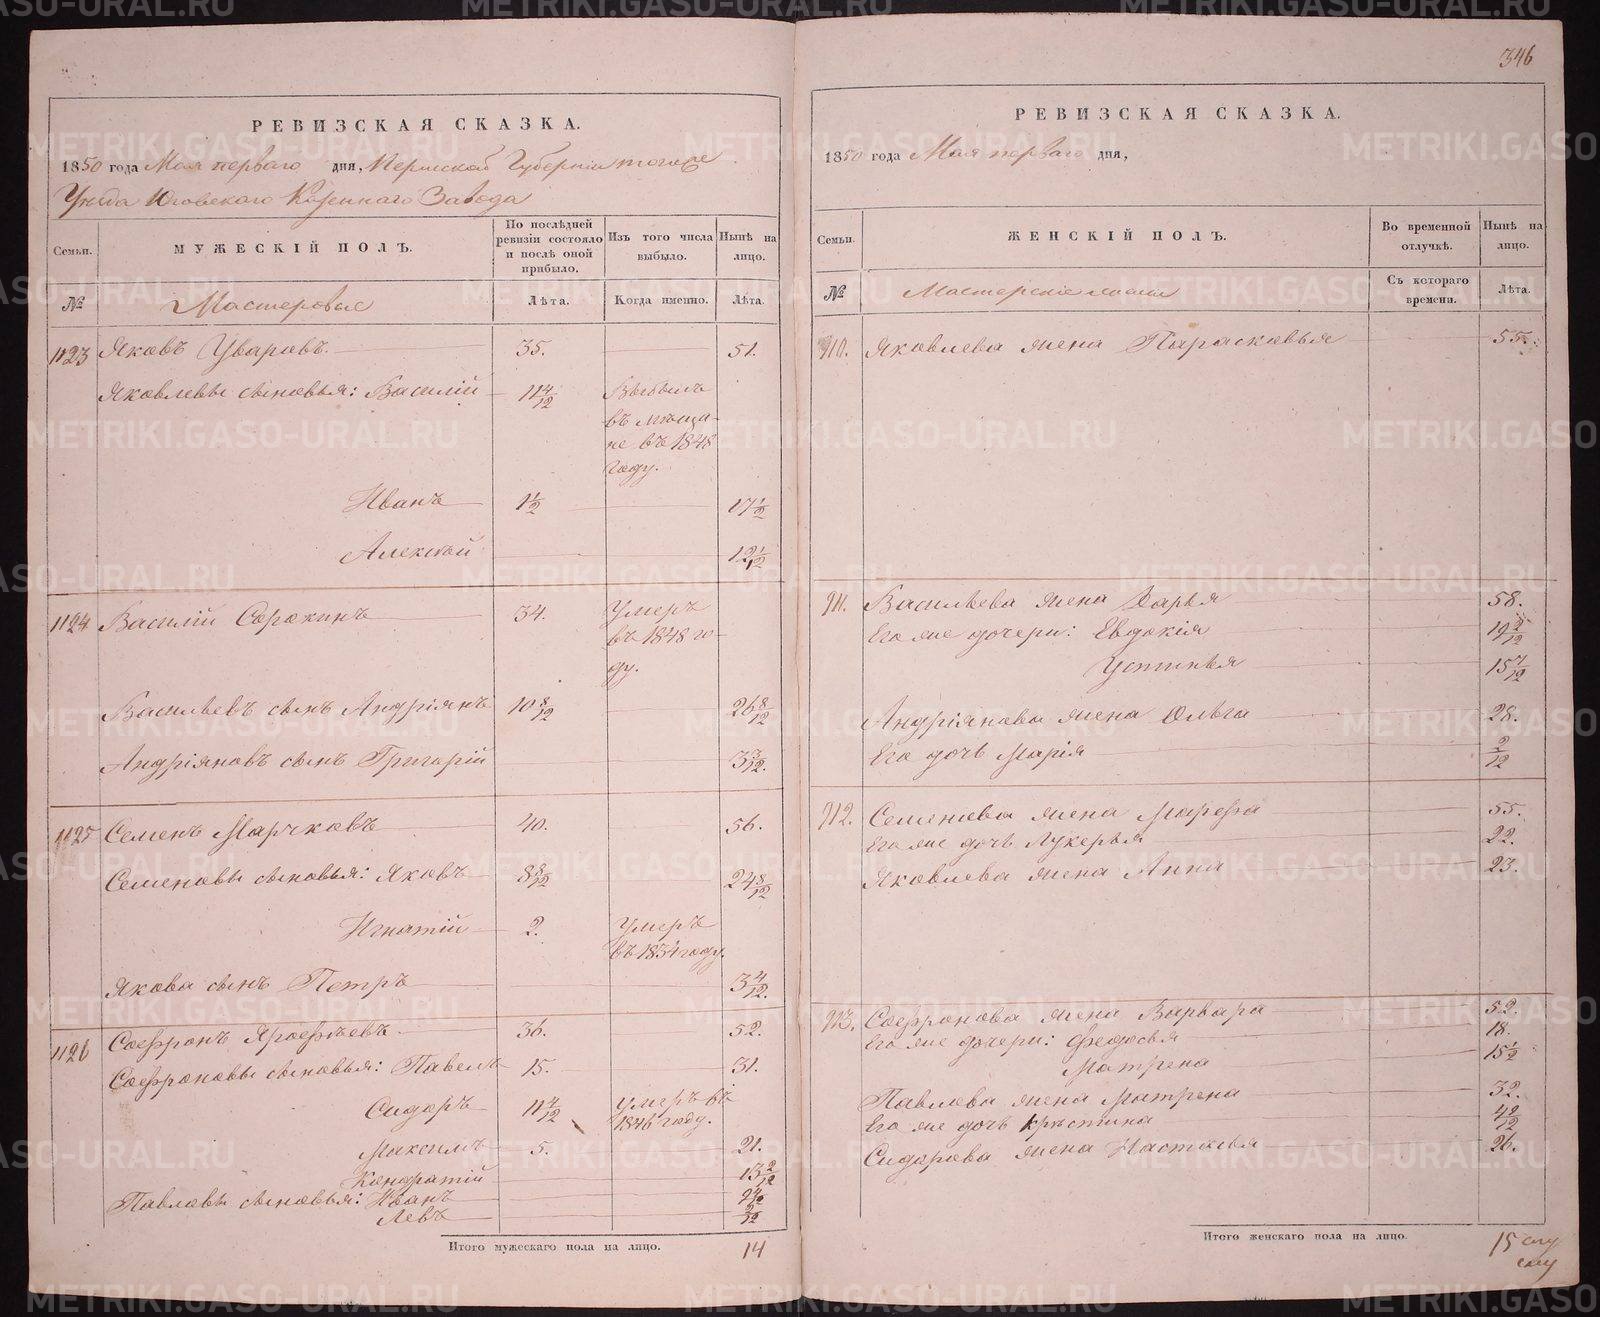 346
РЕВИЗСКАЯ СКАЗКА.
1850 года Мая перваго дня, Пермской Губернiи тогоже
Уезда Юговскаго Казеннаго Завода
Семьи.
МУЖЕСКIЙ ПОЛЪ.
По послѣдней ревизiи состояло и послѣ оной прибыло.
Изъ того числа выбыло.
Нынѣ на лицо.
№
Мастеровые
Лѣта.
Когда именно.
Лѣта.
1123 Яковъ Уваровъ. 35. 51.
Яковлевы сыновья: Василiй 11 4/12 Выбылъ
въ мѣща-
не въ 1848
году.
Иванъ 1 1/2 17 1/2
Алексѣй 12 1/12
1124 Василiй Сорокинъ 34. Умеръ
въ 1848 го-
ду.
Васильевъ сынъ Андрiянъ 10 8/12 26 8/12
Андрiяновъ сынъ Григорiй 3 3/12.
1125 Семенъ Марчковъ 40. 56.
Семеновы сыновья: Яковъ 8 8/12 24 8/12
Игнатiй 2. Умеръ
въ 1834 году.
Якова сынъ Петръ 3 4/12.
1126 Софронъ Ярофѣевъ 36. 52.
Софроновы сыновья: Павелъ 15. 31.
Сидоръ 11 4/12 Умеръ въ
1846 году.
Максимъ 5. 21.
Кондратiй 13 2/12
Павловы сыновья: Иванъ
Левъ
Итого мужескаго пола на лицо. 14
РЕВИЗСКАЯ СКАЗКА.
1850 года Мая перваго дня,
Семьи.
ЖЕНСКIЙ ПОЛЪ.
Во временной отлучкѣ.
Нынѣ на лицо.
№
Мастерскiе
Съ котораго времени.
Лѣта.
910. Яковлева жена Парасковья 55.
911. Васильева жена Дарья 58.
Его же дочери: Евдокiя 19 2/12
Устинья 15 7/12
Андрiянова жена Ольга 28.
Его дочь Марiя 2/12
912. Семенова жена Марфа 55.
Его же дочь Лукерья 22.
Яковлева жена Анна 23.
913. Софронова жена Варвара 52.
Его же дочери: Федосья 18.
Матрена 15 1/2
Павлова жена Матрена 32.
Его же дочь Крѣстина
Сидорова жена Настасья 26.
Итого женскаго пола на лицо. 15
METRIKI.GASO-URAL.RU